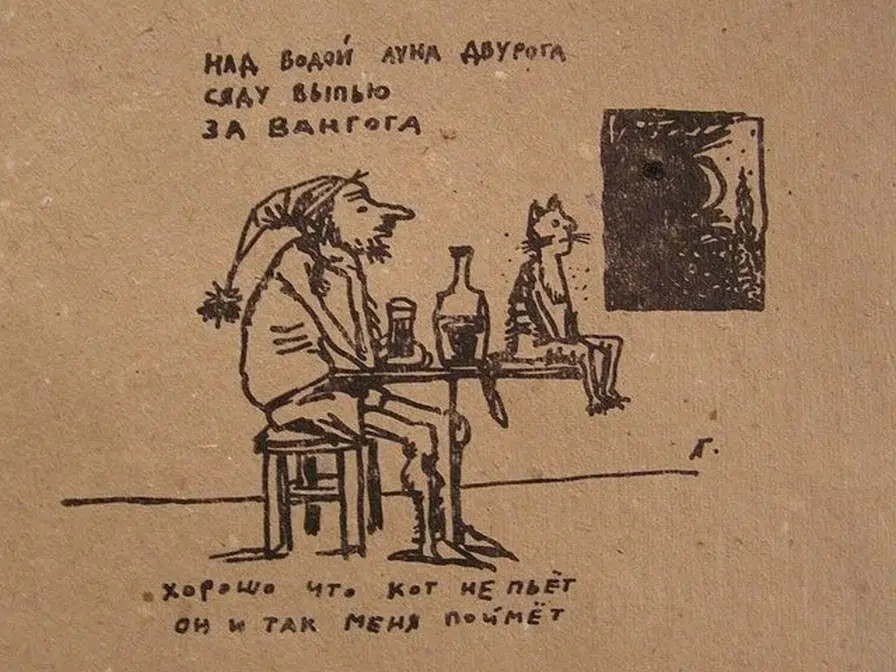 НАД ВОДОЙ ЛУНА ДВУРОГА
СЯДУ ВЫПЬЮ
ЗА ВАНГОГА
Г.
ХОРОШО ЧТО КОТ НЕ ПЬЁТ
ОН И ТАК МЕНЯ ПОЙМЁТ